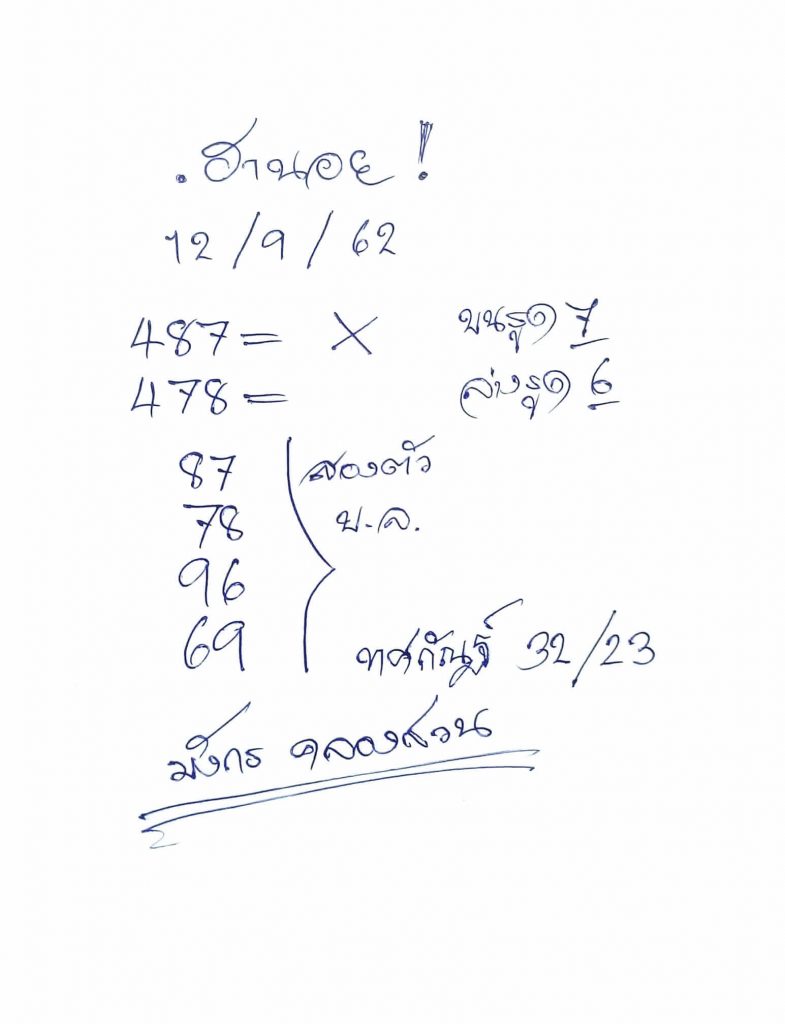 .ฮานอย!
12/9/62
487= X บนรูด 7
478= ล่างรูด 6
87 สองตัว
78 บ.ล.
96
69 ทศกัณฐ์ 32/23
มังกร คลองสวน